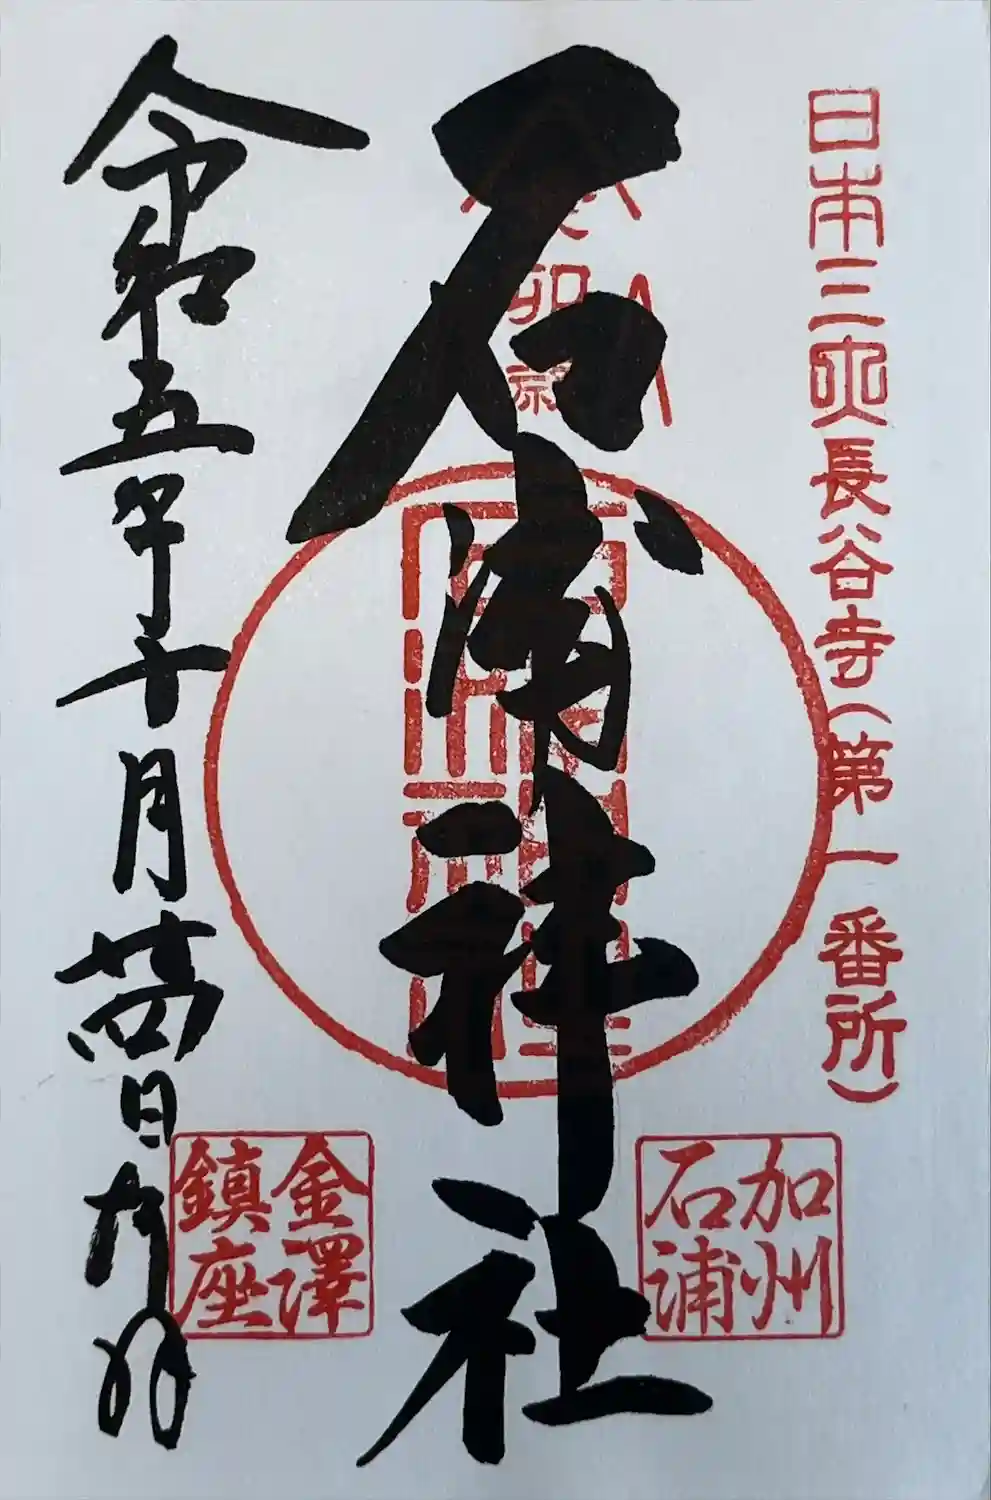 日本三大長谷寺(第一番所)
加州
石浦
石浦神社
卯
金澤
鎮座
令和五年十月廿四日